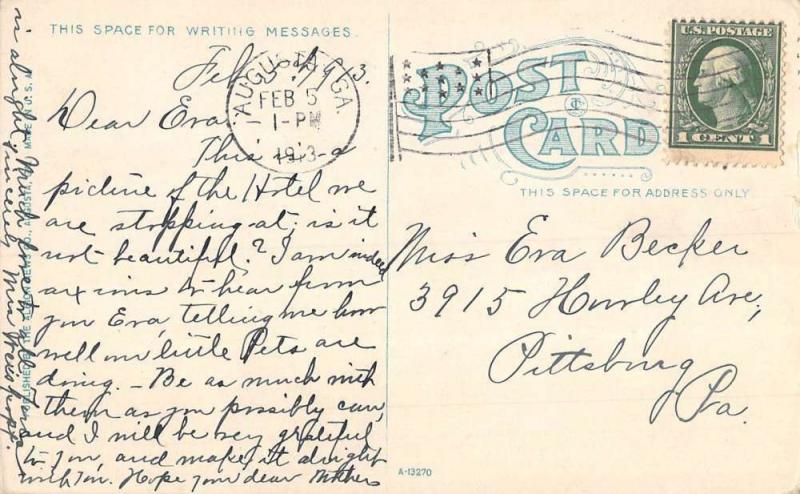 THIS SPACE FOR WRITING MESSAGES.
Feb. 5th 1913.
Dear Eva
This is a
picture of the Hotel we
are stopping at, is it
not beautiful? I am indeed
anxious to hear from
you Eva, telling me how
well our little Pets are
doing. - Be as much with
them as you possibly can,
and I will be very grateful
to you, and make it alright
with you. Hope your dear Mothers
is alright, Much love to all
sincerely Mrs
AUGUSTA, GA.
FEB 5
1-PM
1913
POST
CARD
THIS SPACE FOR ADDRESS ONLY
U.S. POSTAGE
1 CENT 1
Miss Eva Becker
3915 Hurley Ave,
Pittsburg
Pa.
A-13270